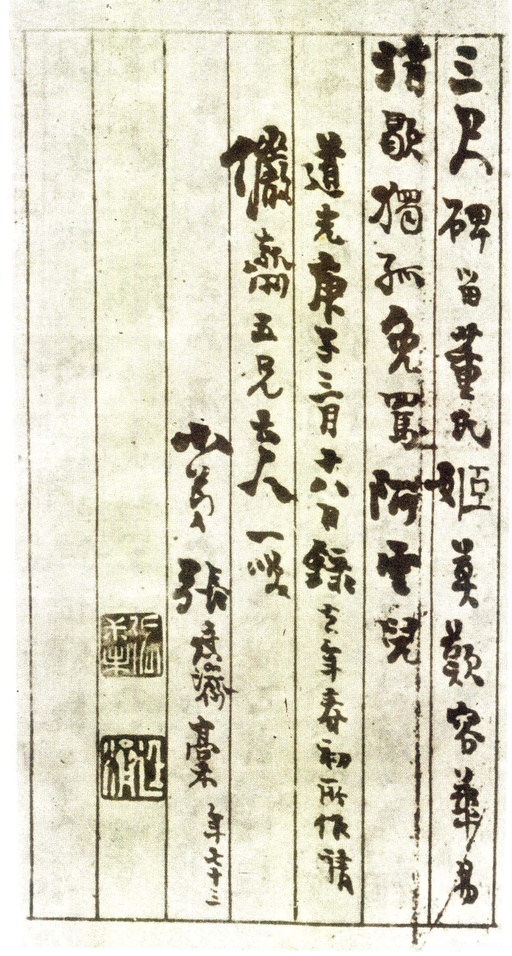 三尺碑留董氏姬莫歎容華易
消歇獨孤免罵阿雲兒
道光庚子三月十八日錄去年春初所作請
五兄大人一笑
小弟張廷濟稾年七十三